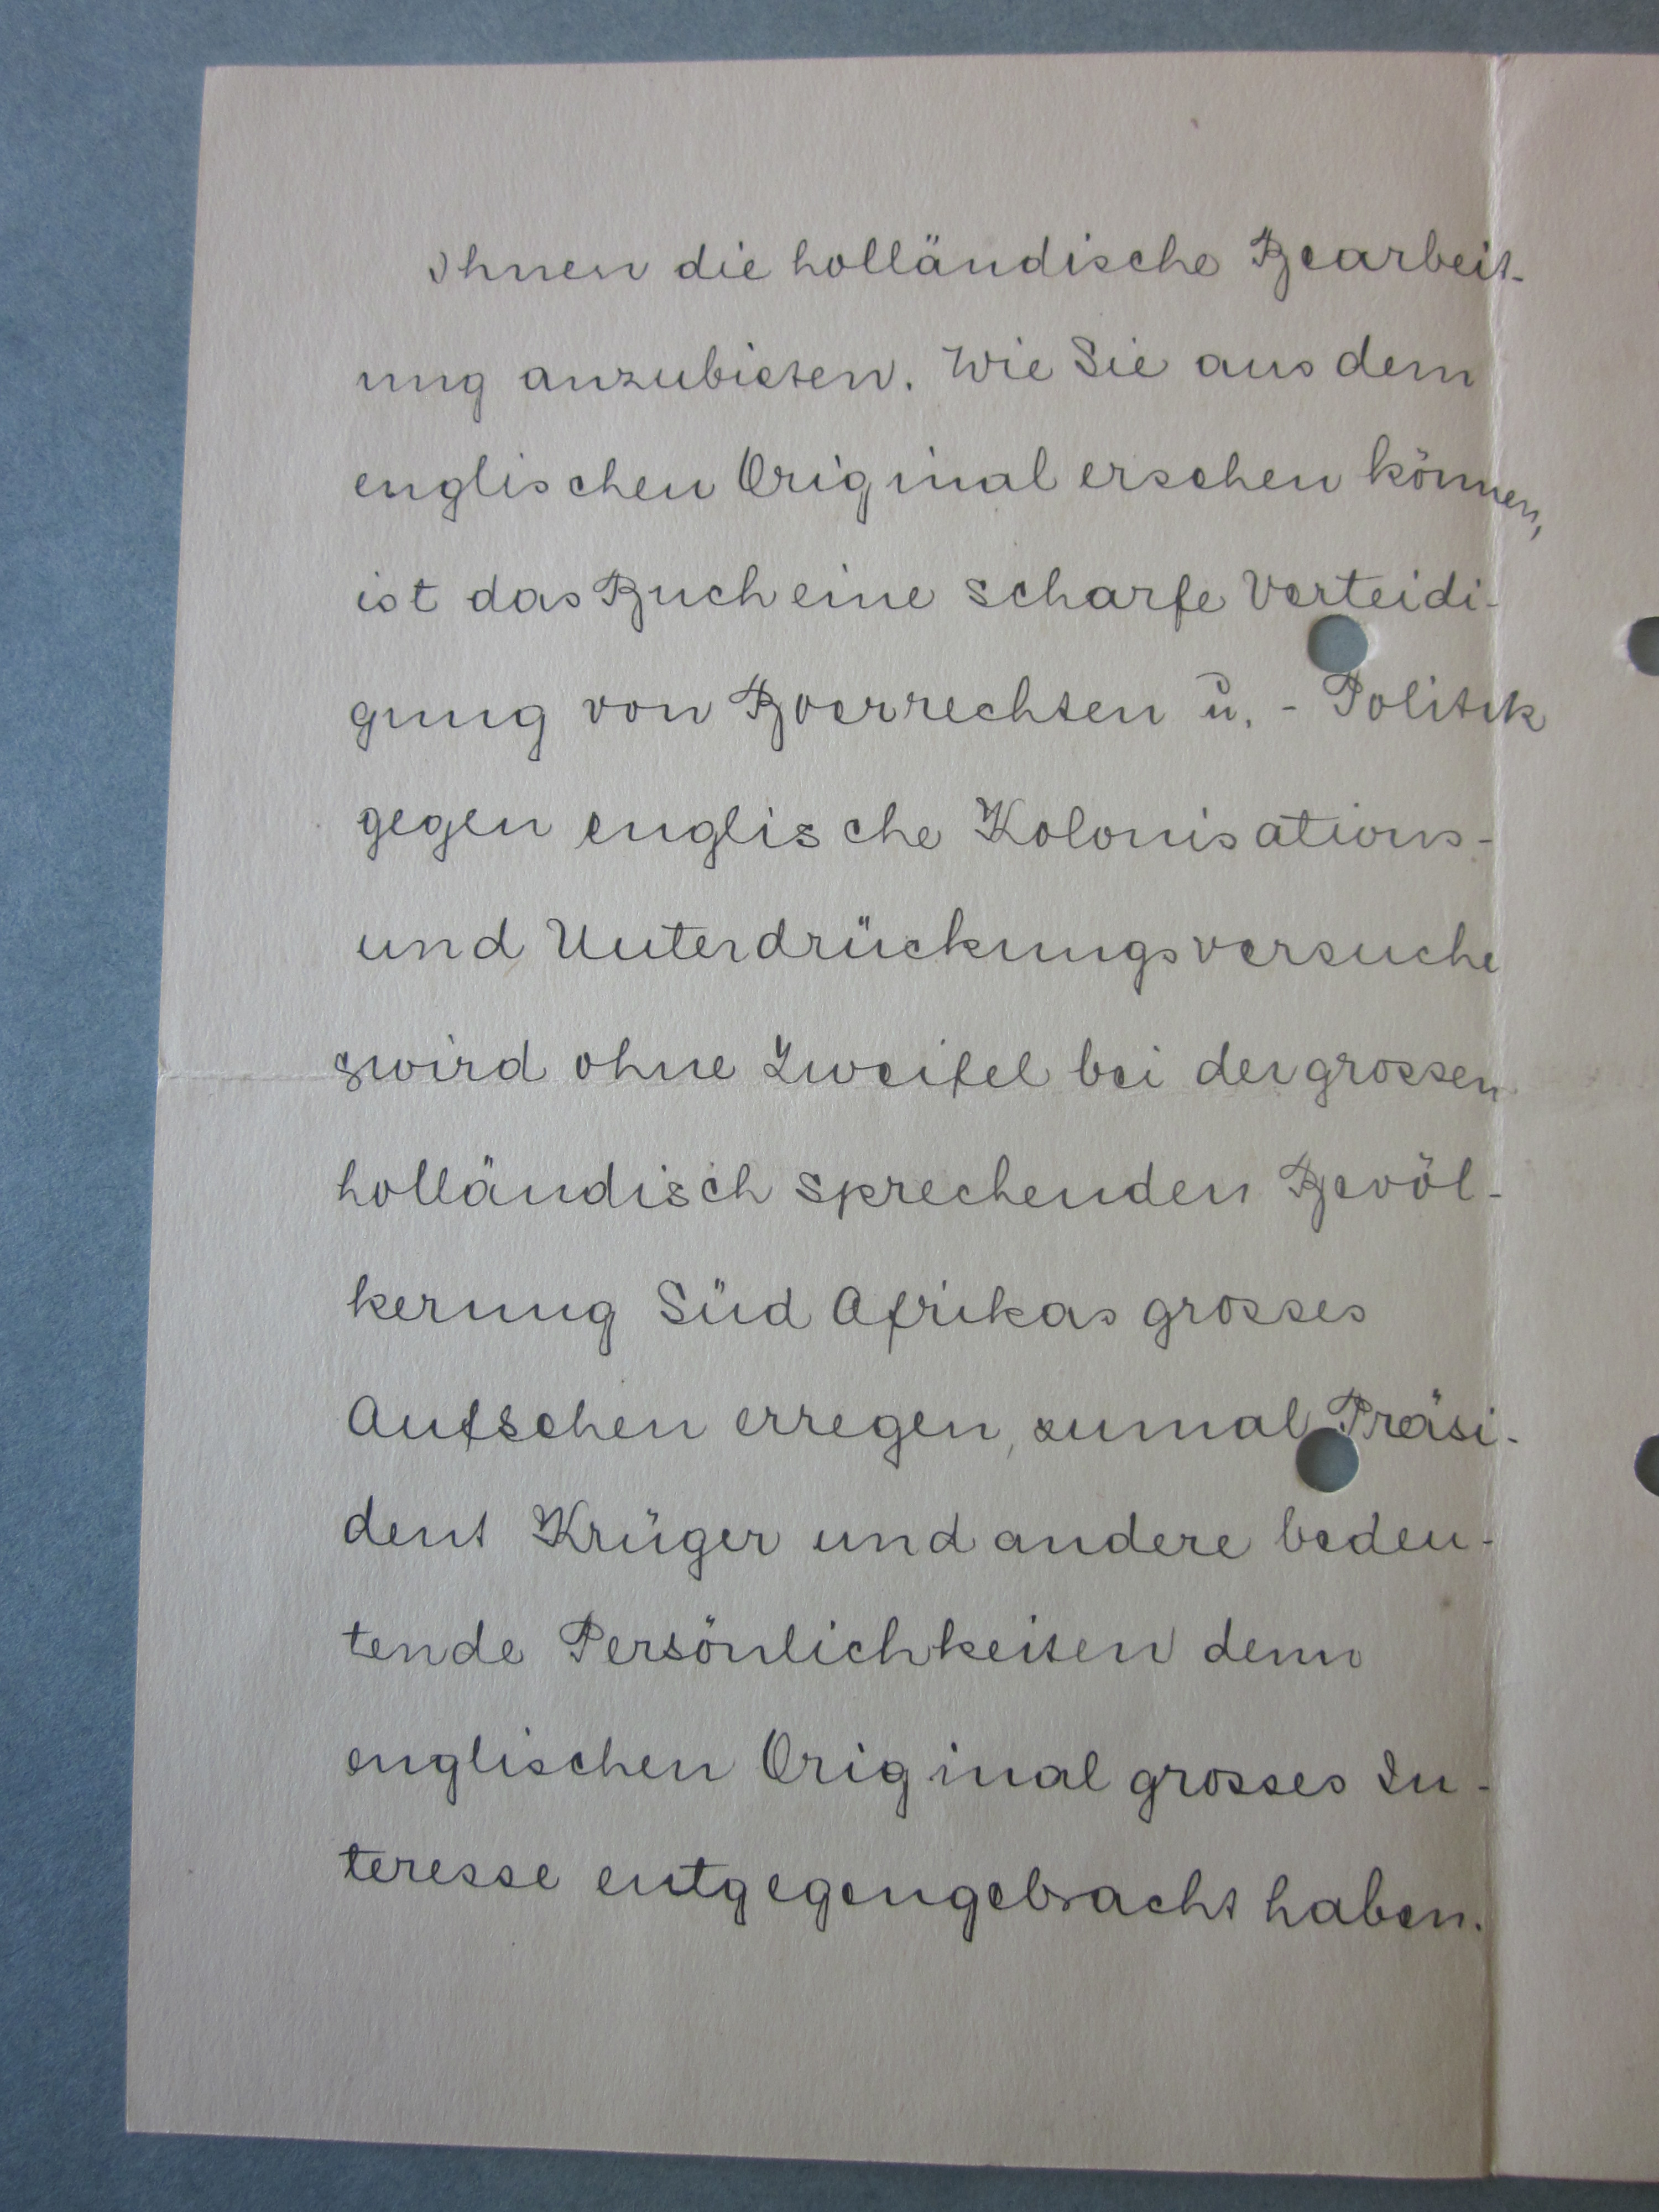 Ihnen die holländische Bearbeit-
ung anzubieten. Wie Sie aus dem
englischen Original ersehen können,
ist das Buch eine scharfe Verteidi-
gung von Boerrechten u. - Politik
gegen englische Kolonisations-
und Unterdrückungsversuche
wird ohne Zweifel bei der grossen
holländisch sprechenden Bevöl-
kerung Süd Afrikas grosses
Aufsehen erregen, zumal Präsi-
dent Krüger und andere bedeu-
tende Persönlichkeiten dem
englischen Original grosses In-
teresse entgegengebracht haben.